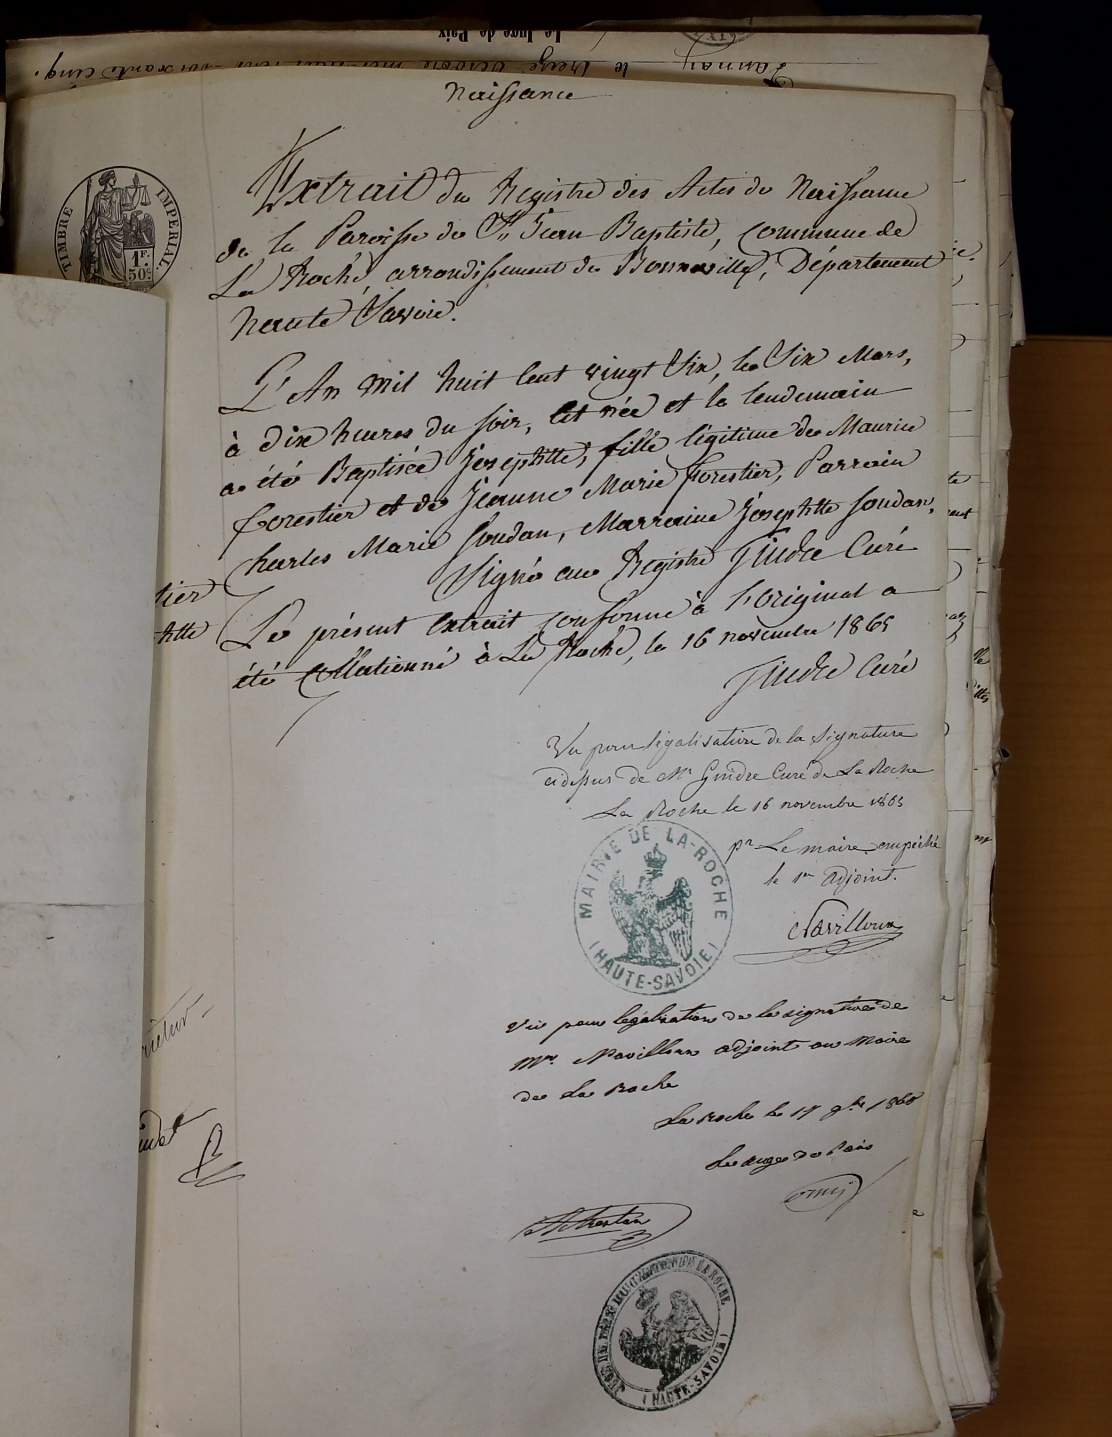 Le Juge de Paix
Tannay le treize octobre mil huit cent soixante cinq.
Naissance
TIMBRE IMPERIAL.
1F.
50c.
Extrait du Registre des Actes de Naissance
de la Paroisse de St Jean Baptiste, commune de
La Roche, arrondissement de Bonneville, Département
haute Savoie.
L'An mil huit cent vingt Six, le Six Mars,
à dix heures du soir, est née et le lendemain
a été Baptisée Josephtte, fille légitime de Maurice
forestier et de Jeanne Marie forestier, Parrain
Charles Marie Soudan, Marraine Josephtte Soudan,
Signé au Registre Gindre Curé
Le présent extrait conforme à l'original a
été collationné à La Roche, le 16 novembre 1865
Gindre Curé
tier
htte
Vu pour légalisation de la signature
cidessus de Mr Gindre Curé de La Roche
La Roche le 16 novembre 1865
pr Le maire empêché
le 1er adjoint.
Navilloux
MAIRIE DE LA-ROCHE
(HAUTE-SAVOIE)
Vu pour légalisation de la signature de
Mr. Navilloux adjoint au Maire
de La Roche
La Roche le 17 9bre 1865
Le Juge de Paix
JUGE DE PAIX DE LA ROCHE
(HAUTE-SAVOIE)